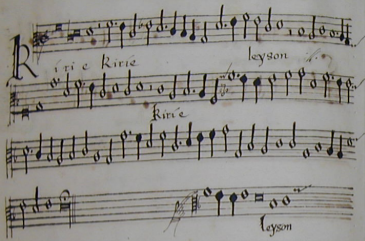 Kirie Kirie leyson
Kirie
leyson